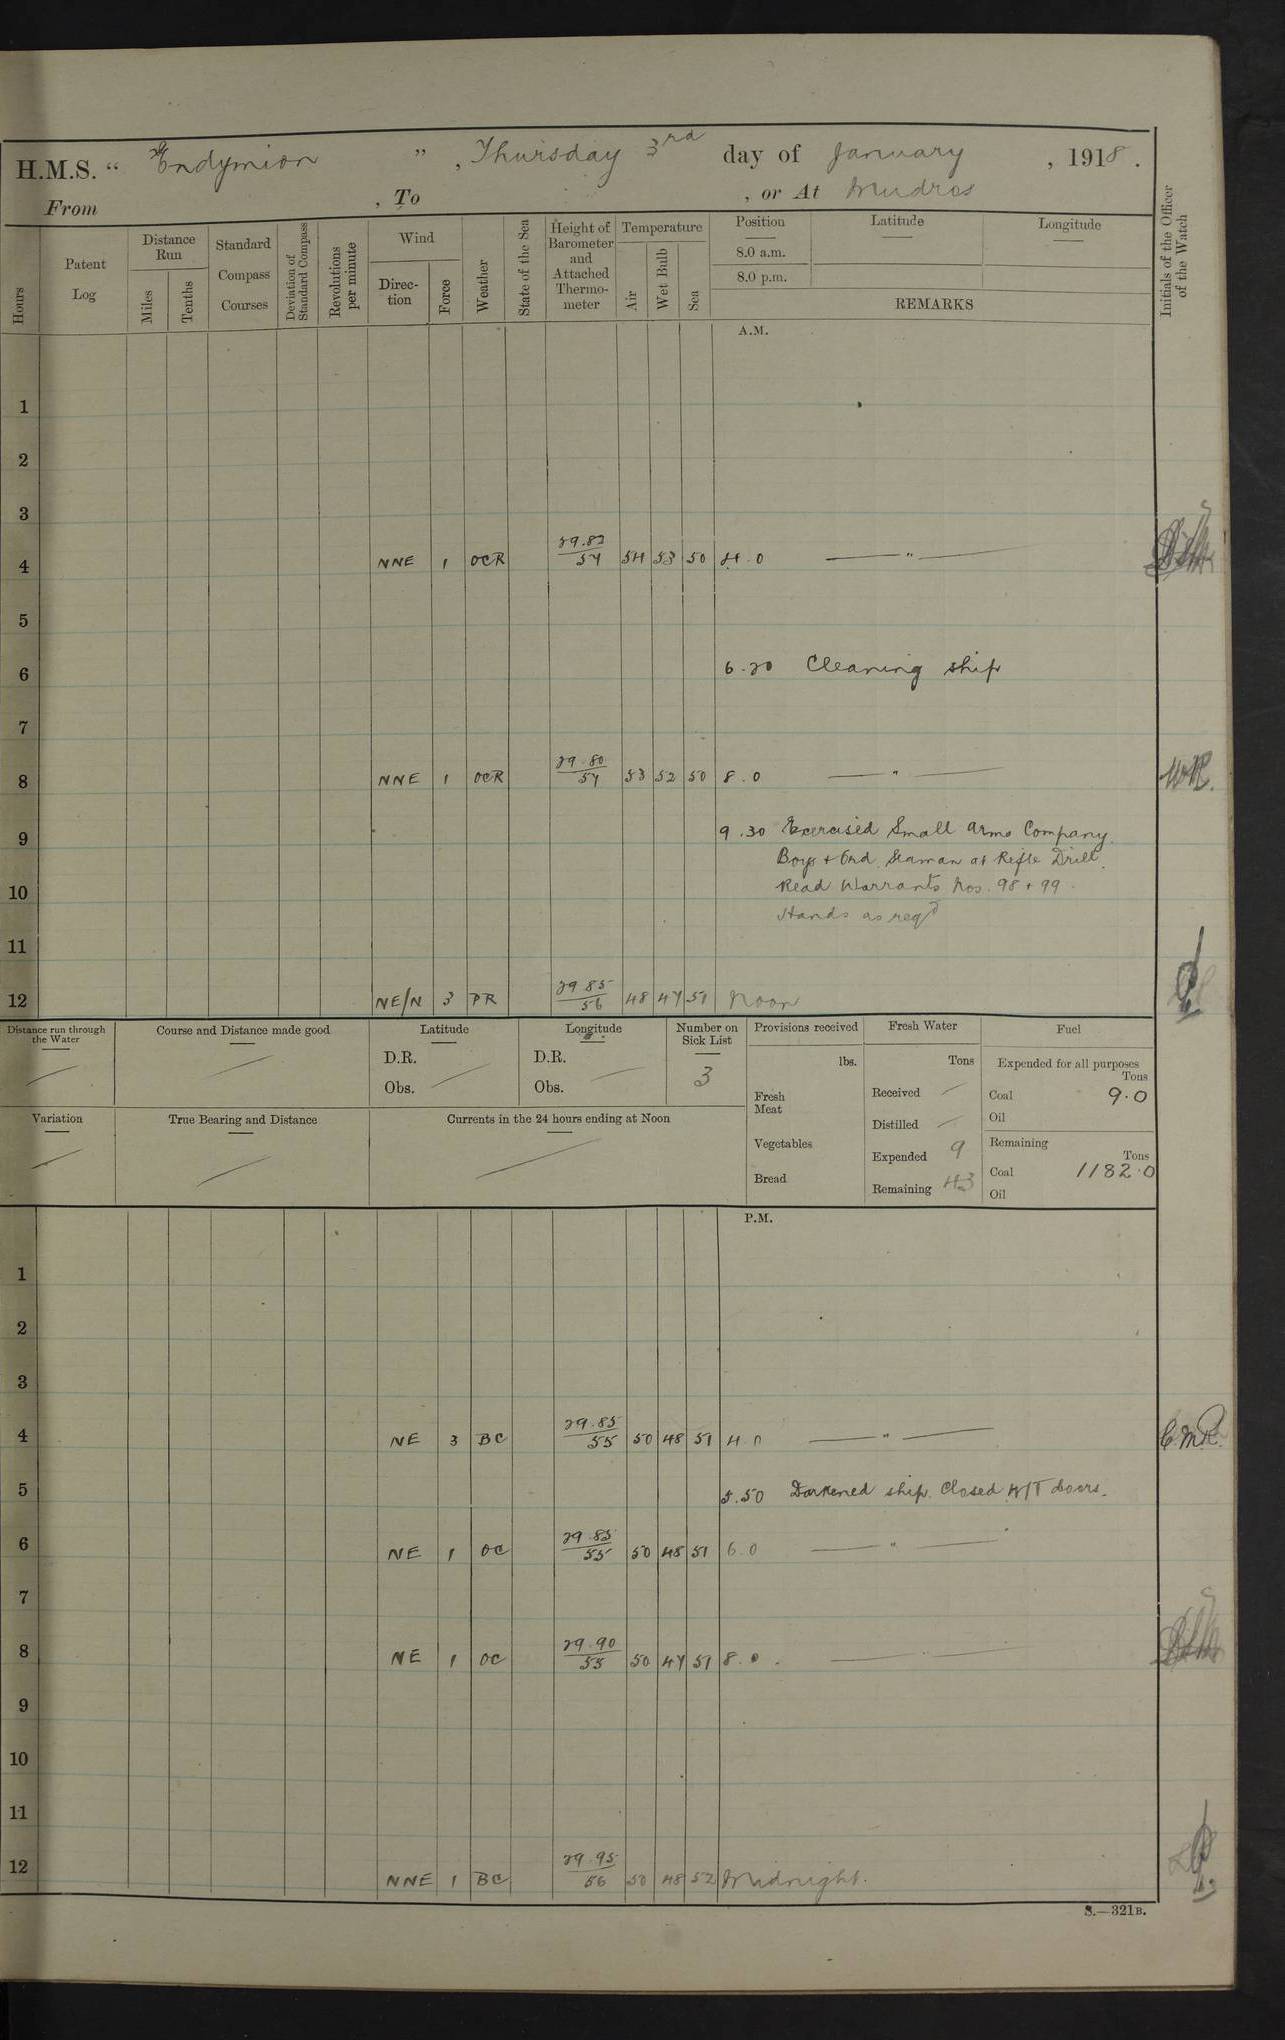 H.M.S. “ Endymion ” , Thursday 3rd day of January , 1918.
From , To , or At Mudros
Hours
Patent Log
Distance Run
Miles
Tenths
Standard Compass Courses
Deviation of Standard Compass
Revolutions per minute
Wind
Direc-tion
Force
Weather
State of the Sea
Height of Barometer and Attached Thermo-meter
Temperature
Air
Wet Bulb
Sea
Position
8.0 a.m.
8.0 p.m.
Latitude
Longitude
REMARKS
Initials of the Officer of the Watch
A.M.
1
2
3
4 NNE 1 OCR 29.82 54 54 53 50 4.0 — " —
5
6 6.20 Cleaning ship
7
8 NNE 1 OCR 29.80 54 53 52 50 8.0 — " —
9 9.30 Exercised Small Arms Company.
Boys + Ord. Seaman at Rifle Drill.
10 Read Warrants Nos. 98 + 99.
Hands as reqd
11
12 NE/N 3 PR 29.85 56 48 47 51 Noon
Distance run through the Water
Course and Distance made good
Latitude
D.R.
Obs.
Longitude
D.R.
Obs.
Number on Sick List
3
Provisions received
lbs.
Fresh Meat
Vegetables
Bread
Fresh Water
Tons
Received
Distilled
Expended 9
Remaining 43
Fuel
Expended for all purposes
Tons
Coal 9.0
Oil
Remaining
Tons
Coal 1182.0
Oil
Variation
True Bearing and Distance
Currents in the 24 hours ending at Noon
P.M.
1
2
3
4 NE 3 BC 29.85 55 50 48 51 4.0 — " —
5 5.50 Darkened ship. Closed W/T doors.
6 NE 1 OC 29.85 55 50 48 51 6.0 — " —
7
8 NE 1 OC 29.90 55 50 47 51 8.0.
9
10
11
12 NNE 1 BC 29.95 56 50 48 52 Midnight.
S.—321B.